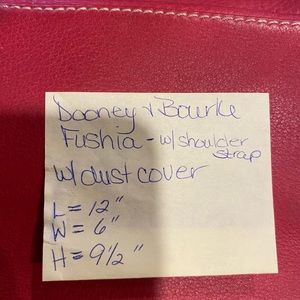 Dooney & Bourke
Fushia - w/shoulder strap
w/dust cover
L = 12"
W = 6"
H = 9 1/2"